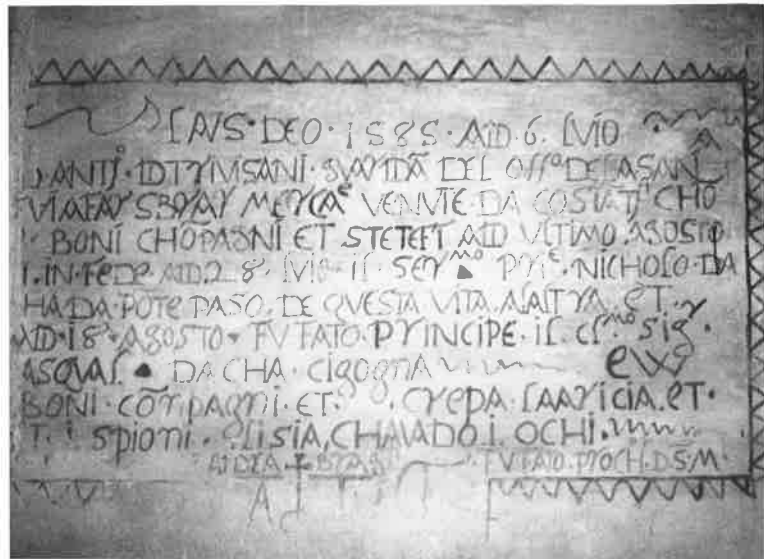 LAVS·DEO·1585·AID·6·LVIO
ANTO·DTYIVISANI·GVAYDĀ DEL OFFO·DELA SAN
VIA FAY SBOYAY MEYCAE VENVTE DA COSTATI CHO
BONI CHŌPAGNI ET STETETT AID VLTIMO AGOSTO
I·IN·FEDE·AID·28·LVIO·IL SEYMO PYIE·NICHOLO·DA
HADA·POTE PASO·DE QVESTA VITA ALALTYA·ET·
AID·18·AGOSTO·FV FATO·PYINCIPE·IL CLMO SIG·
ASQVAL DACHA·CIGOGNA
BONI·COMPAGNI·ET· CYEPA·LAAYICIA·ET·
T·I SPIONI·GLI SIA, CHAVADO·I·OCHI·
FV FATO·PYOCH·D·S·M·